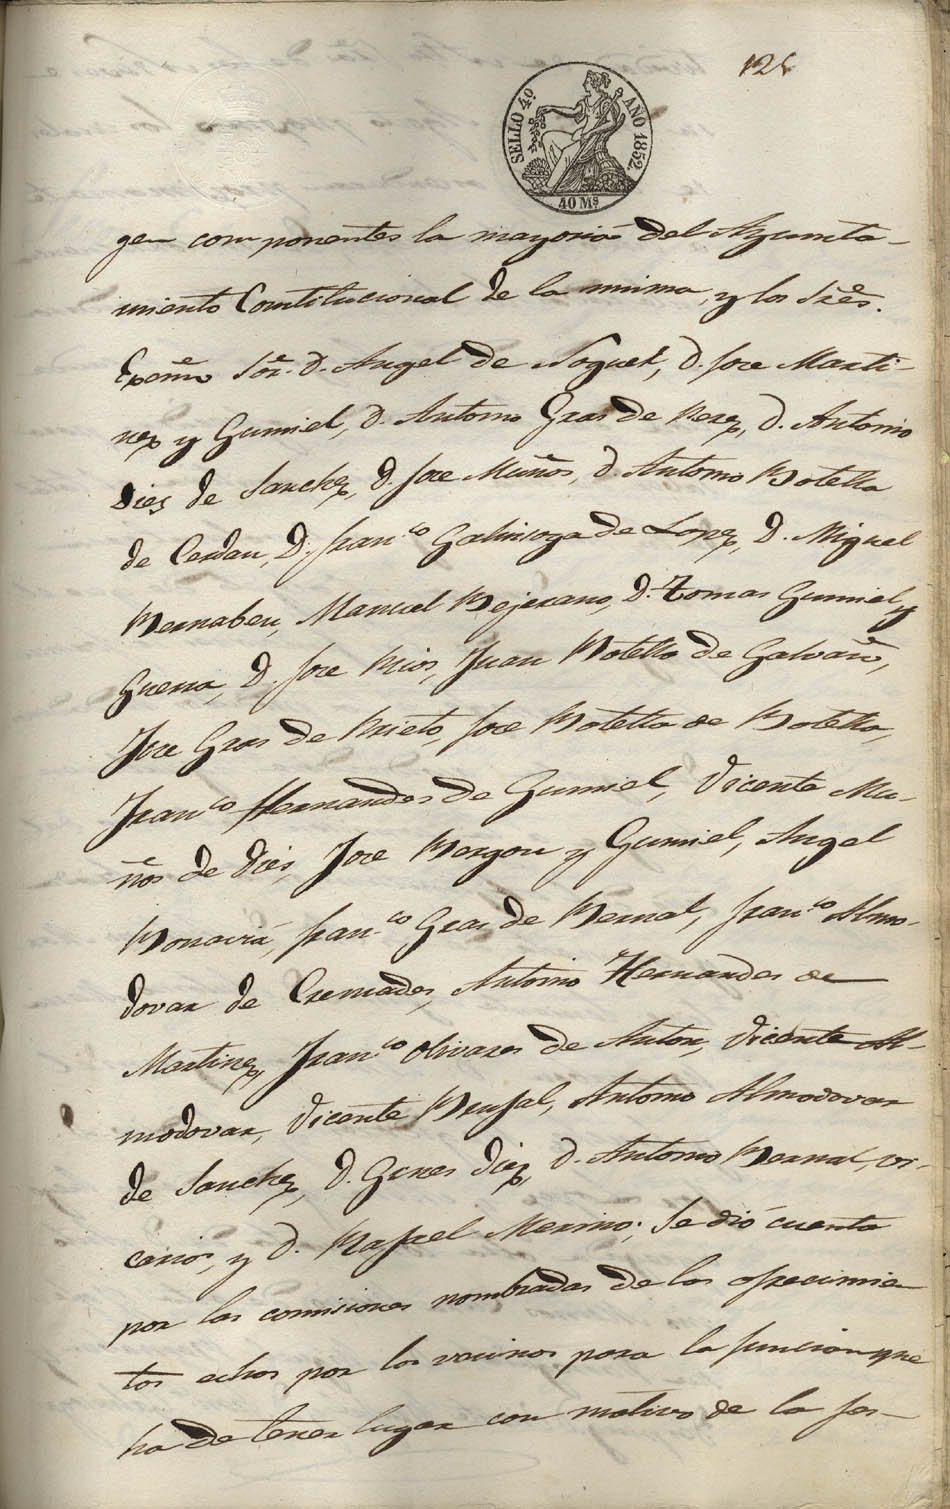 125
SELLO 4º AÑO 1852.
40 Mˢ
gen componentes la mayoria del Ayunta-
miento Constitucional de la misma, y los Sres.
Exmo Sor. D. Angel de Noguet, D. Jose Marti-
nez y Gumiel, D. Antonio Gras de Perez, D. Antonio
Dies de Sanchez, D. Jose Muños, D. Antonio Botella
de Cerdan, D. Franco Galinsoga de Lopez, D. Miguel
Bernabeu, Manuel Bejerano, D. Tomas Gumiel y
Guerra, D. Jose Rios, Juan Botella de Galvañ,
Jose Gras de Prieto, Jose Botella de Botella,
Franco Hernandes de Gumiel, Vicente Mu-
ños de Dies, Jose y Gumiel, Angel
Franco Gras de Bernal, Franco Almo-
dovar de Cremades, Antonio Hernandes de
Martinez, Franco Olivares de Anton, Vicente Al-
modovar, Vicente Antonio Almodovar
de Sanchez, D. Gines Diez, D. Antonio Bernal, vi-
carios, y D. Rafael Merino; Se dió cuenta
por las comisiones nombradas de los ofrecimien
tos echos por los vecinos para la funcion que
ha de tener lugar con motivo de la fes-